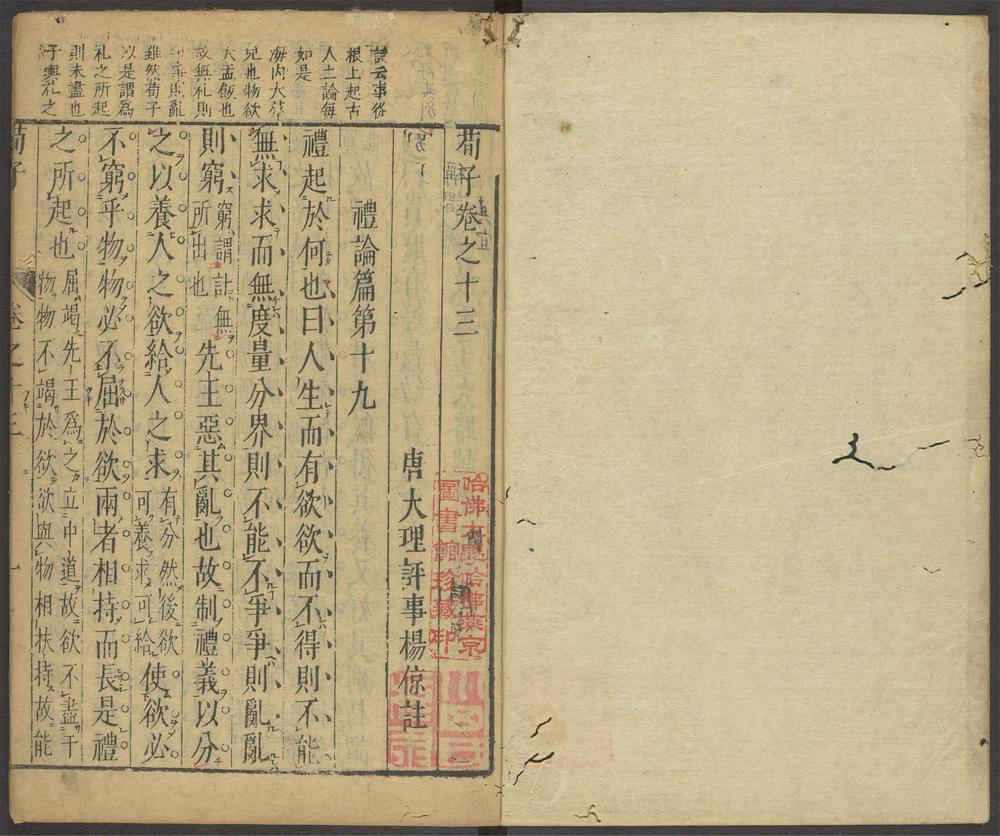 荀子卷之十三
唐大理評事楊倞註
禮論篇第十九
禮起於何也曰人生而有欲欲而不得則不能
無求求而無度量分界則不能不爭爭則亂亂
則窮窮謂計無所出也先王惡其亂也故制禮義以分
之以養人之欲給人之求有分然後欲可養求可給使欲必
不窮乎物物必不屈於欲兩者相持而長是禮
之所起也屈竭先王爲之立中道故欲不盡于物物不竭於欲欲與物相扶持故能
根上起古
人之論每
如是
海内大
兄也物欲
大盂飯也
故無礼則
則亂
雖然荀子
以是謂爲
礼之所起
則未盡也
荀子
卷之十三
一
哈佛大學哈佛燕京
圖書館珍藏印